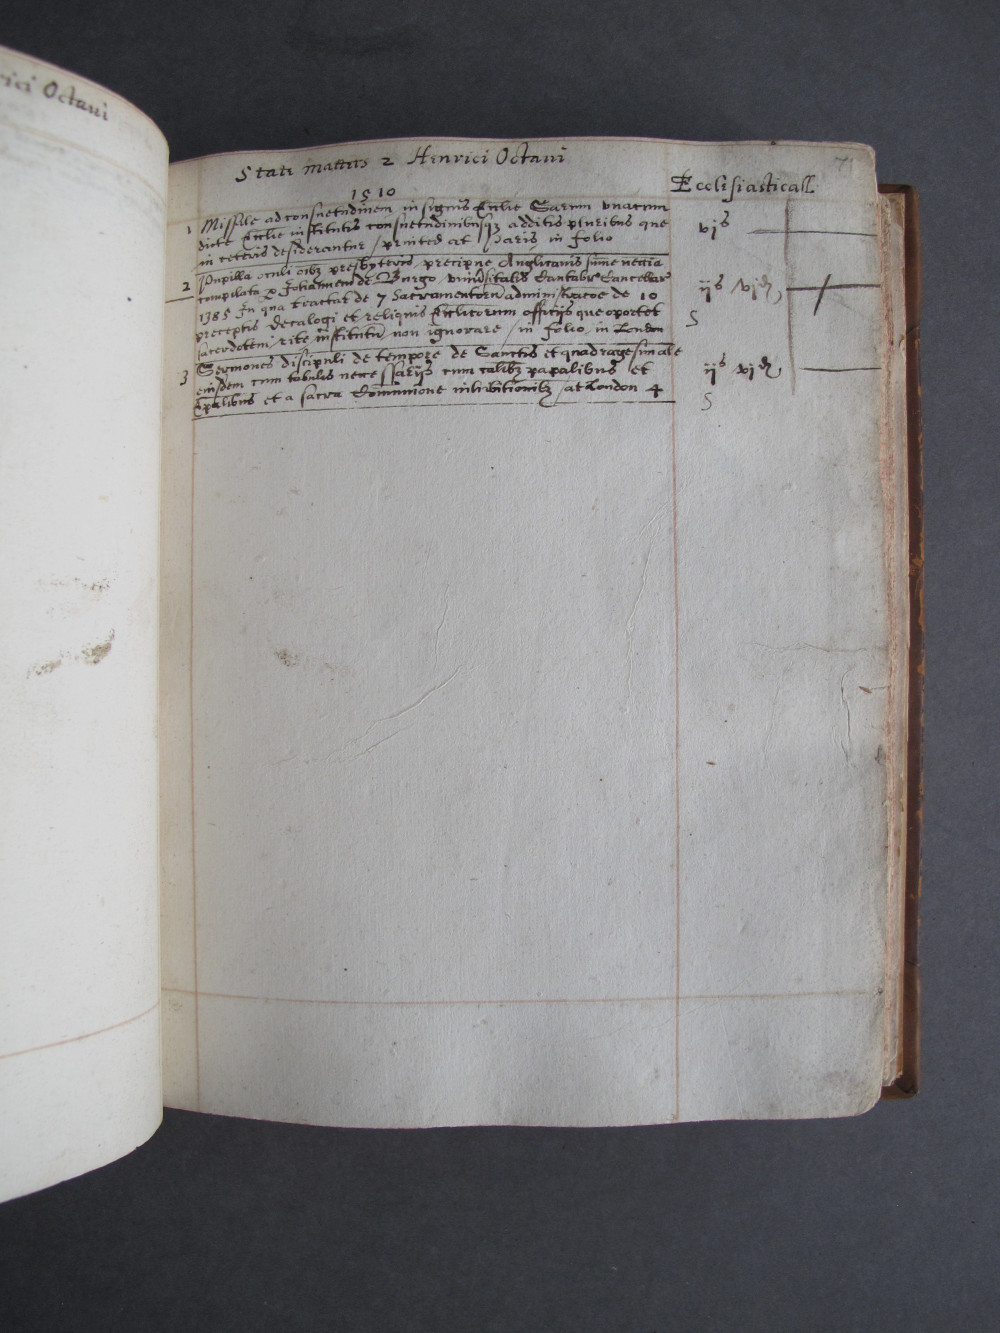 rici Octavi
State matters 2 Henrici Octavi
71
1510
Ecclesiasticall
1 Missale ad consuetudinem insignis Ecclie Sarum vnacum
dicte Ecclie institutis consuetudinibusqz additis pluribus que
in ceteris desiderantur / printed at Paris in folio
vjs
2 Pupilla oculi oibz presbyteris, precipue Anglicanis sume necria
compilata p Johannem de Burgo, vniversitatis Cantabr Cancellar
1385 In qua tractat de 7 Sacramentoru administracoe de 10
preceptis decalogi et reliquis Eccliticorum offitijs que oportet
sacerdotem rite institutu non ignorare / in folio, in London
ijs vjd,
5
3 Sermones discipuli de tempore de Sanctis et quadragesimale
eiusdem cum tabulis necessarijs cum casibz papalibus et
Epalibus et a sacra Communione inhibitionibz / at London 4
ijs vjd,
5